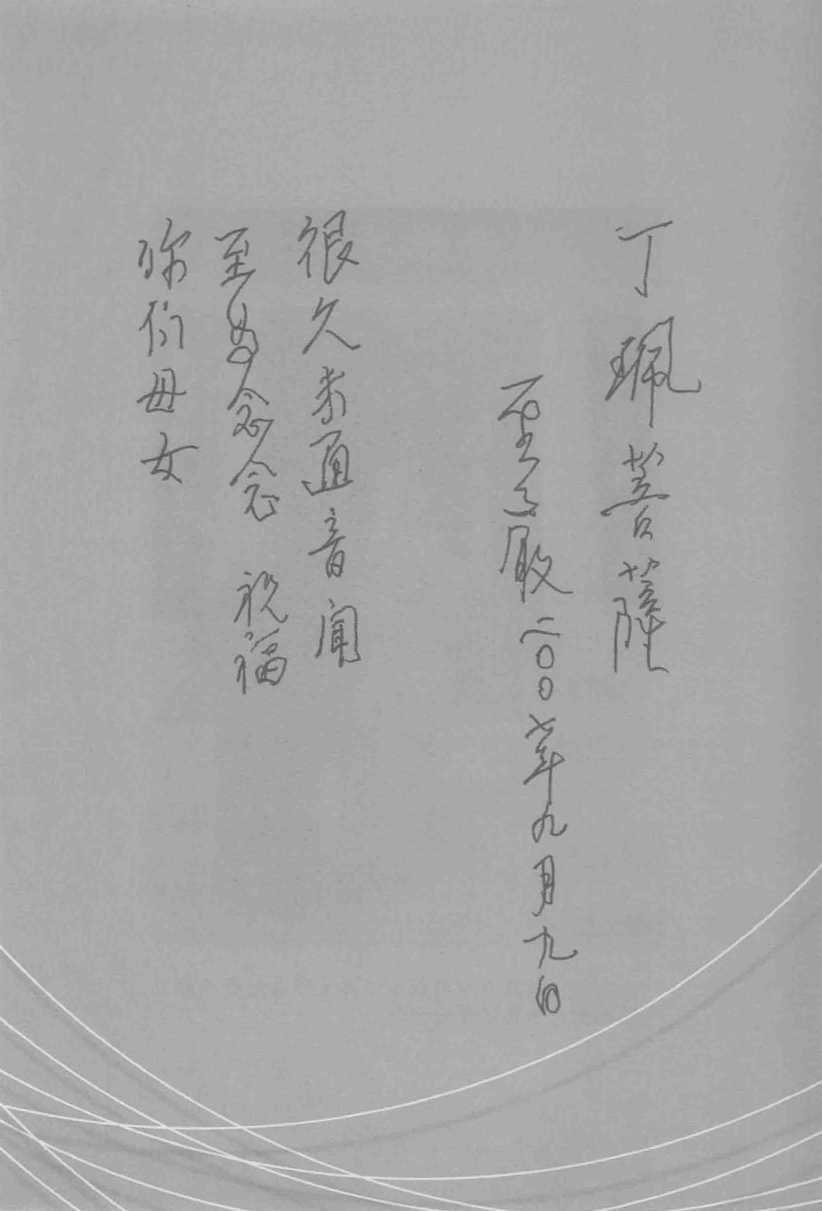 丁珮菩薩
聖嚴二〇〇七年九月九日
很久未通音聞
至為念念 祝福
你們母女